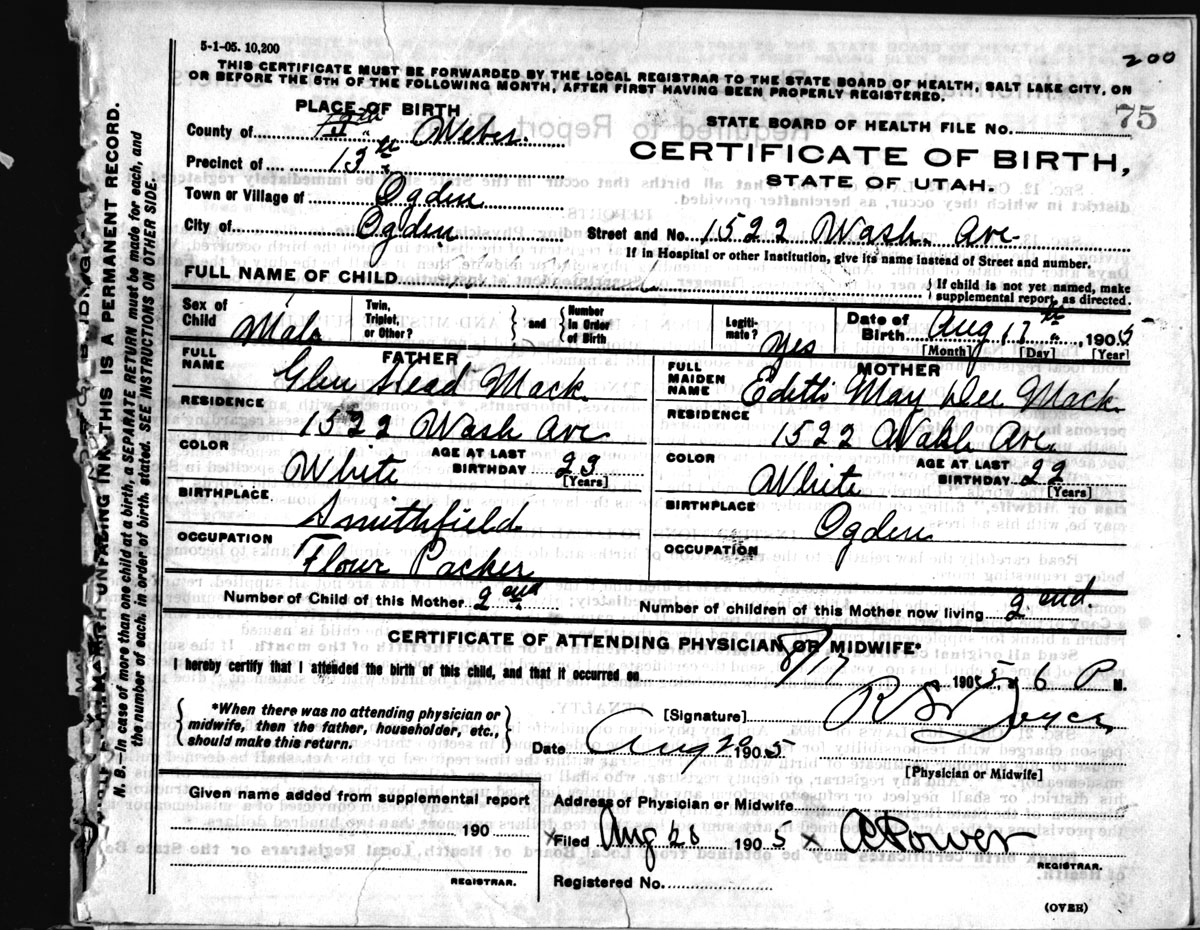 200
5-1-05. 10,200
THIS CERTIFICATE MUST BE FORWARDED BY THE LOCAL REGISTRAR TO THE STATE BOARD OF HEALTH, SALT LAKE CITY, ON
OR BEFORE THE 5TH OF THE FOLLOWING MONTH, AFTER FIRST HAVING BEEN PROPERLY REGISTERED.
PLACE OF BIRTH
STATE BOARD OF HEALTH FILE NO. 75
County of Weber.
CERTIFICATE OF BIRTH,
Precinct of 13th
STATE OF UTAH.
Town or Village of Ogden
City of Ogden
Street and No. 1522 Wash. Ave
If in Hospital or other Institution, give its name instead of Street and number.
FULL NAME OF CHILD
If child is not yet named, make
supplemental report, as directed.
Sex of Child Male
Twin, Triplet, or Other?
and
Number in Order of Birth
Legiti-mate? Yes
Date of Birth Aug 17th 1905
[Month] [Day] [Year]
FATHER
FULL NAME Glen Stead Mack
RESIDENCE
1522 Wash Ave
COLOR White
AGE AT LAST BIRTHDAY 23
[Years]
BIRTHPLACE
Smithfield
OCCUPATION
Flour Packer
MOTHER
FULL MAIDEN NAME Edith May Dee Mack
RESIDENCE
1522 Wash Ave
COLOR White
AGE AT LAST BIRTHDAY 22
[Years]
BIRTHPLACE
Ogden
OCCUPATION
Number of Child of this Mother 2end
Number of children of this Mother now living 2end
CERTIFICATE OF ATTENDING PHYSICIAN OR MIDWIFE*
I hereby certify that I attended the birth of this child, and that it occurred on 8/17 1905, at 6 P M.
*When there was no attending physician or
midwife, then the father, householder, etc.,
should make this return.
[Signature] R S Joyce
Date Aug 20 1905
[Physician or Midwife]
Given name added from supplemental report
190
REGISTRAR.
Address of Physician or Midwife
x Filed Aug 20 1905 x A Power
REGISTRAR.
Registered No.
(OVER)
WITH UNFADING INK—THIS IS A PERMANENT RECORD.
N. B.—In case of more than one child at a birth, a SEPARATE RETURN must be made for each, and
the number of each, in order of birth, stated. SEE INSTRUCTIONS ON OTHER SIDE.